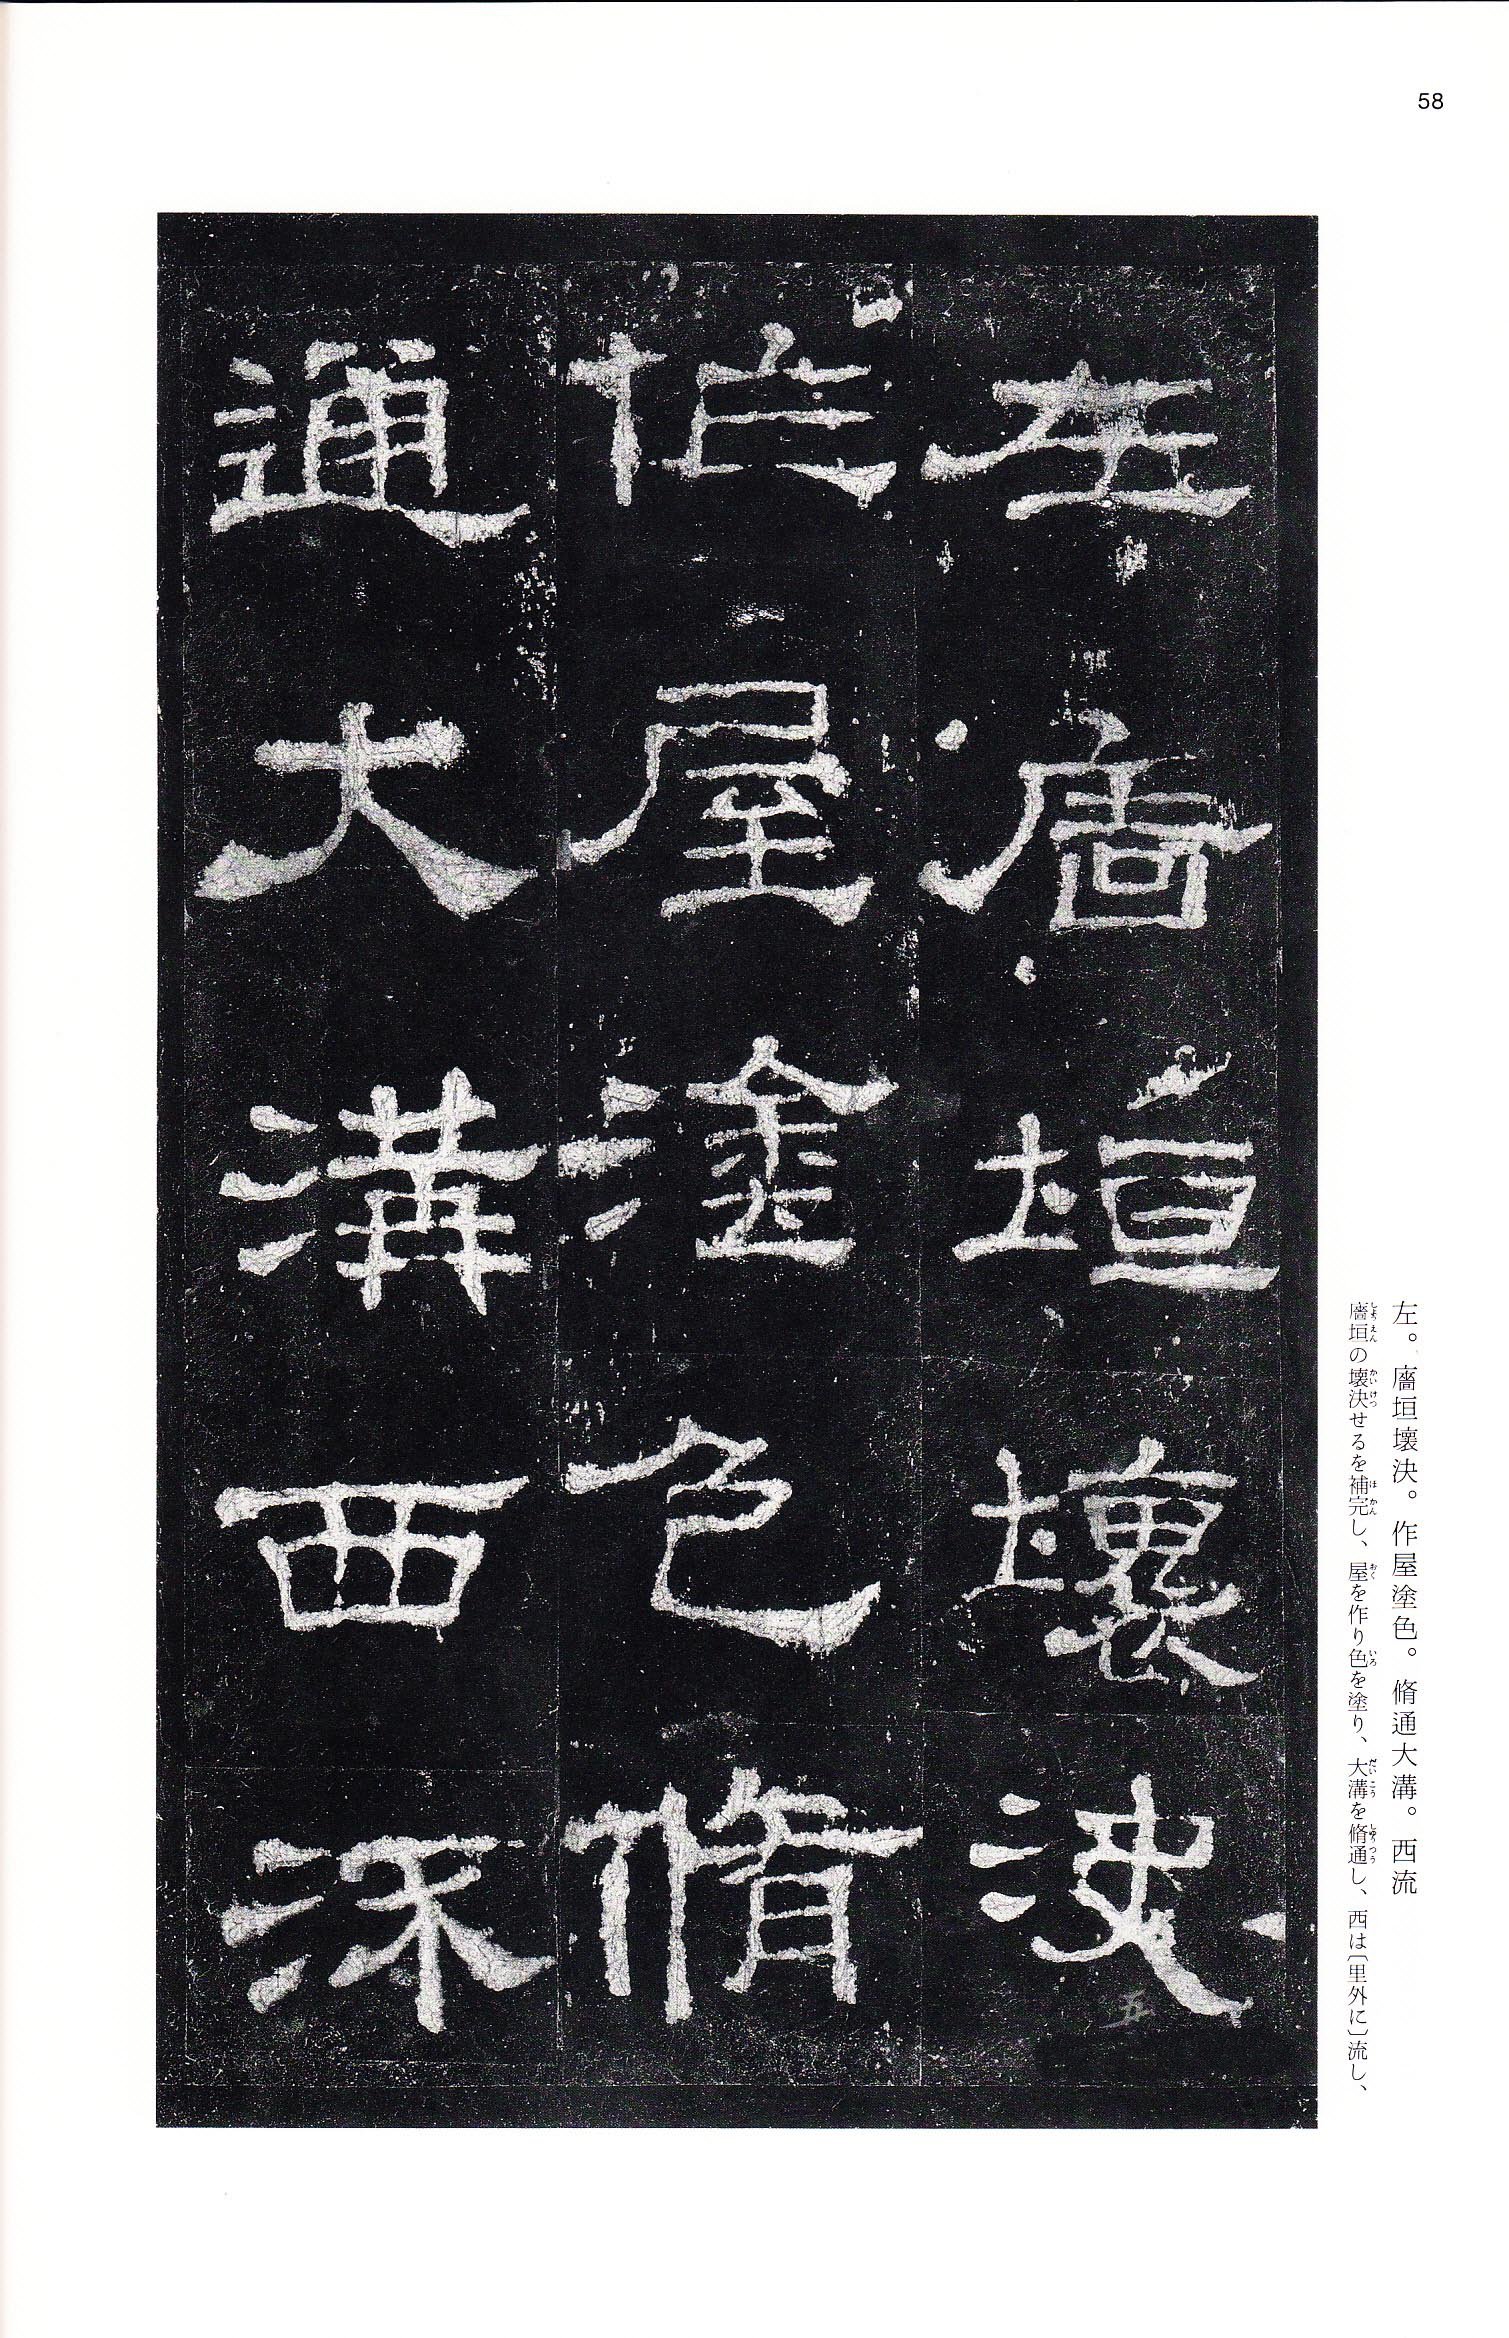 58
左廧垣壞決
作屋塗色脩
通大溝西流
五
左。廧垣壞決。作屋塗色。脩通大溝。西流
廧垣の壊決せるを補完し、屋を作り色を塗り、大溝を脩通し、西は〔里外に〕流し、